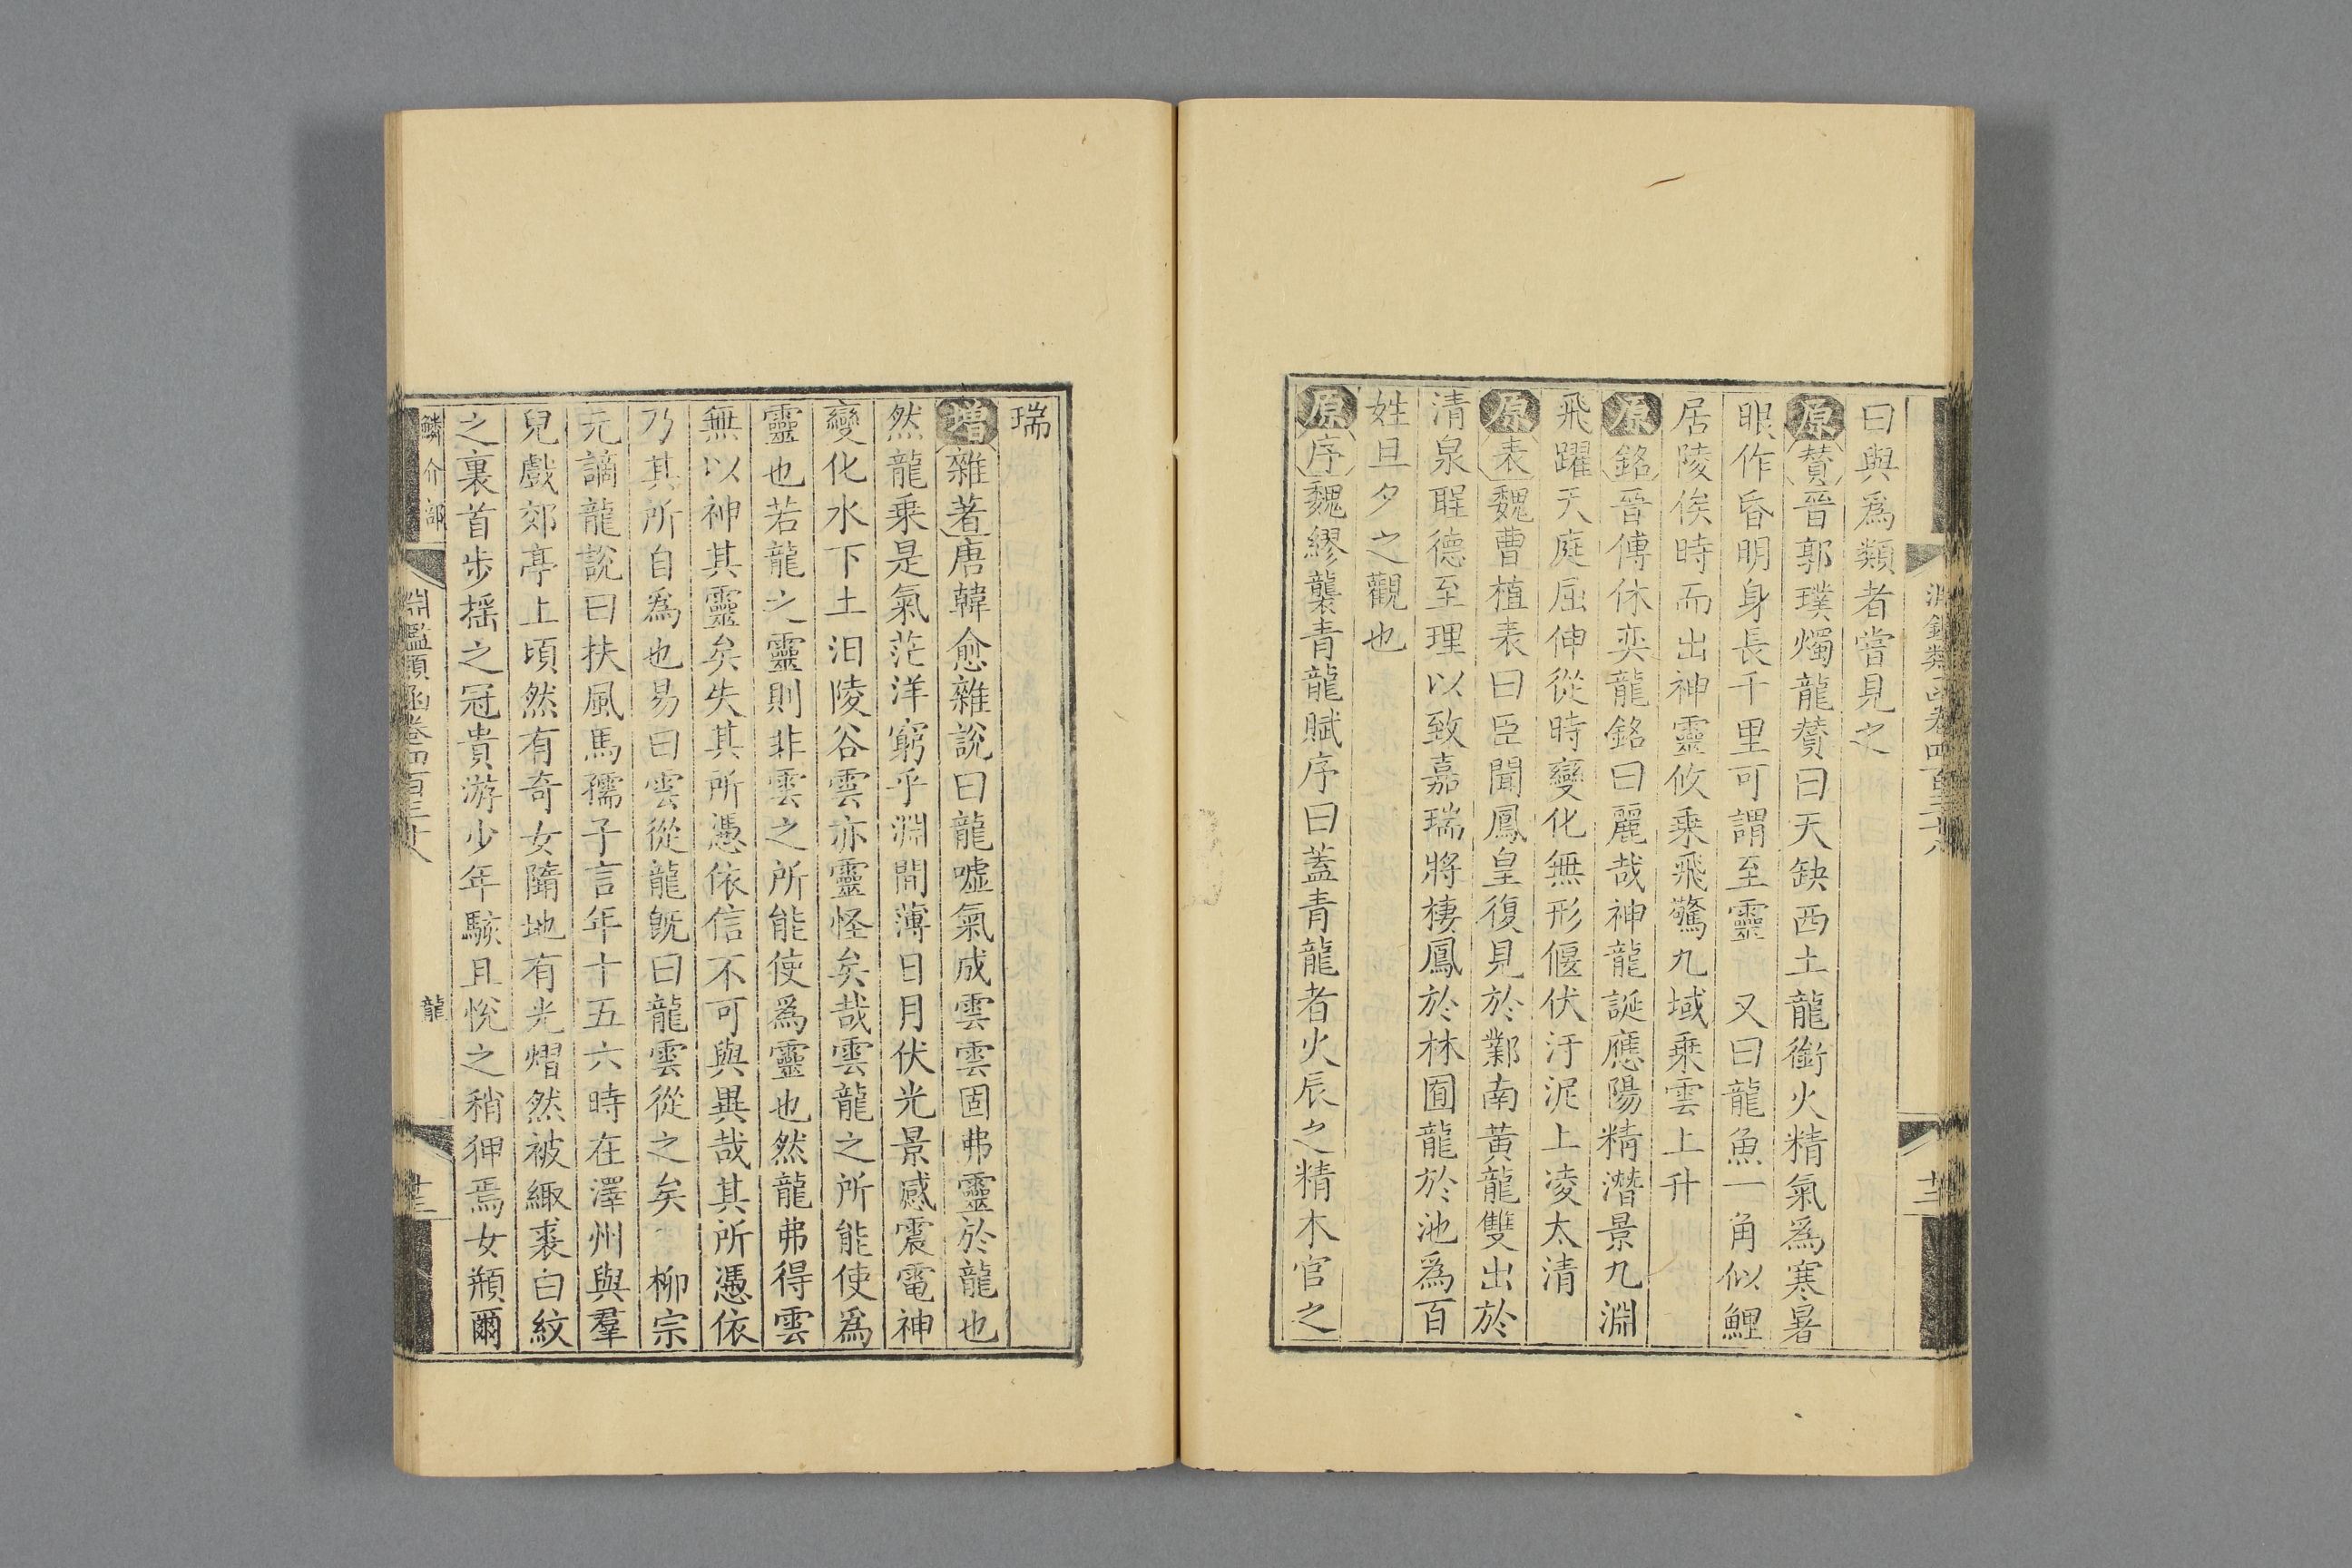 曰與爲類者嘗見之
原贊晉郭璞燭龍贊曰天缺西土龍銜火精氣爲寒暑
眼作昏明身長千里可謂至靈 又曰龍魚一角似鯉
居陵俟時而出神靈攸乘飛騖九域乘雲上升
原銘晉傅休奕龍銘曰麗哉神龍誕應陽精潛景九淵
飛躍天庭屈伸從時變化無形偃伏汙泥上凌太清
原表魏曹植表曰臣聞鳳皇復見於鄴南黃龍雙出於
清泉聖德至理以致嘉瑞將棲鳳於林囿龍於池爲百
姓旦夕之觀也
原序魏繆襲青龍賦序曰蓋青龍者火辰之精木官之
瑞
增雜著唐韓愈雜說曰龍噓氣成雲雲固弗靈於龍也
然龍乘是氣茫洋窮乎淵閒薄日月伏光景感震電神
變化水下土汨陵谷雲亦靈怪矣哉雲龍之所能使爲
靈也若龍之靈則非雲之所能使爲靈也然龍弗得雲
無以神其靈矣失其所憑依信不可與異哉其所憑依
乃其所自爲也易曰雲從龍旣曰龍雲從之矣 柳宗
元謫龍說曰扶風馬孺子言年十五六時在澤州與羣
兒戲郊亭上頃然有奇女隨地有光熠然被緅裘白紋
之裏首步搖之冠貴游少年駭且悅之稍狎焉女頩爾
鱗介部
淵鑑類函卷四百三十八
龍